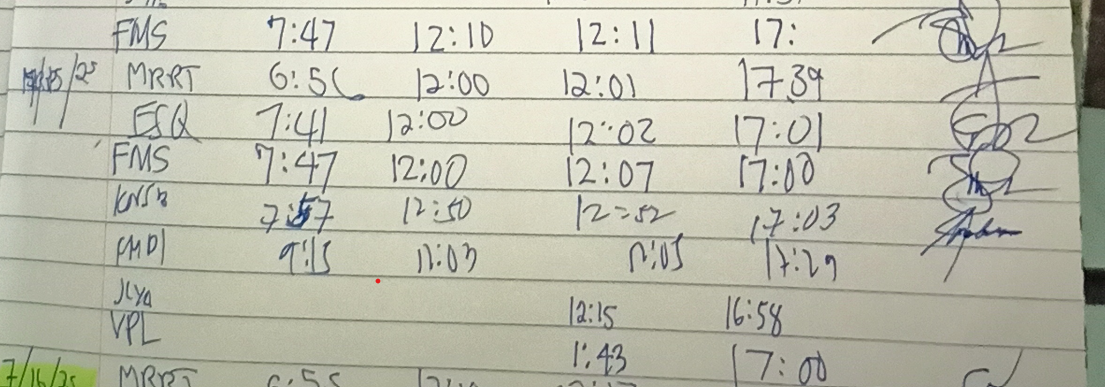 FMS 7:47 12:10 12:11 17:
7/15/25 MRRT 6:56 12:00 12:01 17:39
ESQ 7:41 12:00 12:02 17:01
FMS 7:47 12:00 12:07 17:00
7:57 12:50 12:52 17:03
9:15 12:03 12:05 17:29
12:15 16:58
VPL 1:43 17:00
7/16/25 MRRT 6:55